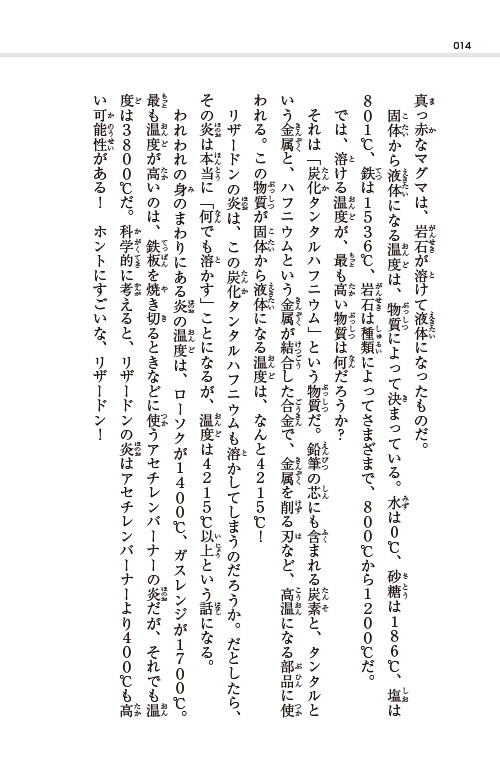 014
真っ赤なマグマは、岩石が溶けて液体になったものだ。
固体から液体になる温度は、物質によって決まっている。水は0℃、砂糖は186℃、塩は
801℃、鉄は1536℃、岩石は種類によってさまざまで、800℃から1200℃だ。
では、溶ける温度が、最も高い物質は何だろうか?
それは「炭化タンタルハフニウム」という物質だ。鉛筆の芯にも含まれる炭素と、タンタルと
いう金属と、ハフニウムという金属が結合した合金で、金属を削る刃など、高温になる部品に使
われる。この物質が固体から液体になる温度は、なんと4215℃!
リザードンの炎は、この炭化タンタルハフニウムも溶かしてしまうのだろうか。だとしたら、
その炎は本当に「何でも溶かす」ことになるが、温度は4215℃以上という話になる。
われわれの身のまわりにある炎の温度は、ローソクが1400℃、ガスレンジが1700℃。
最も温度が高いのは、鉄板を焼き切るときなどに使うアセチレンバーナーの炎だが、それでも温
度は3800℃だ。科学的に考えると、リザードンの炎はアセチレンバーナーより400℃も高
い可能性がある! ホントにすごいな、リザードン!